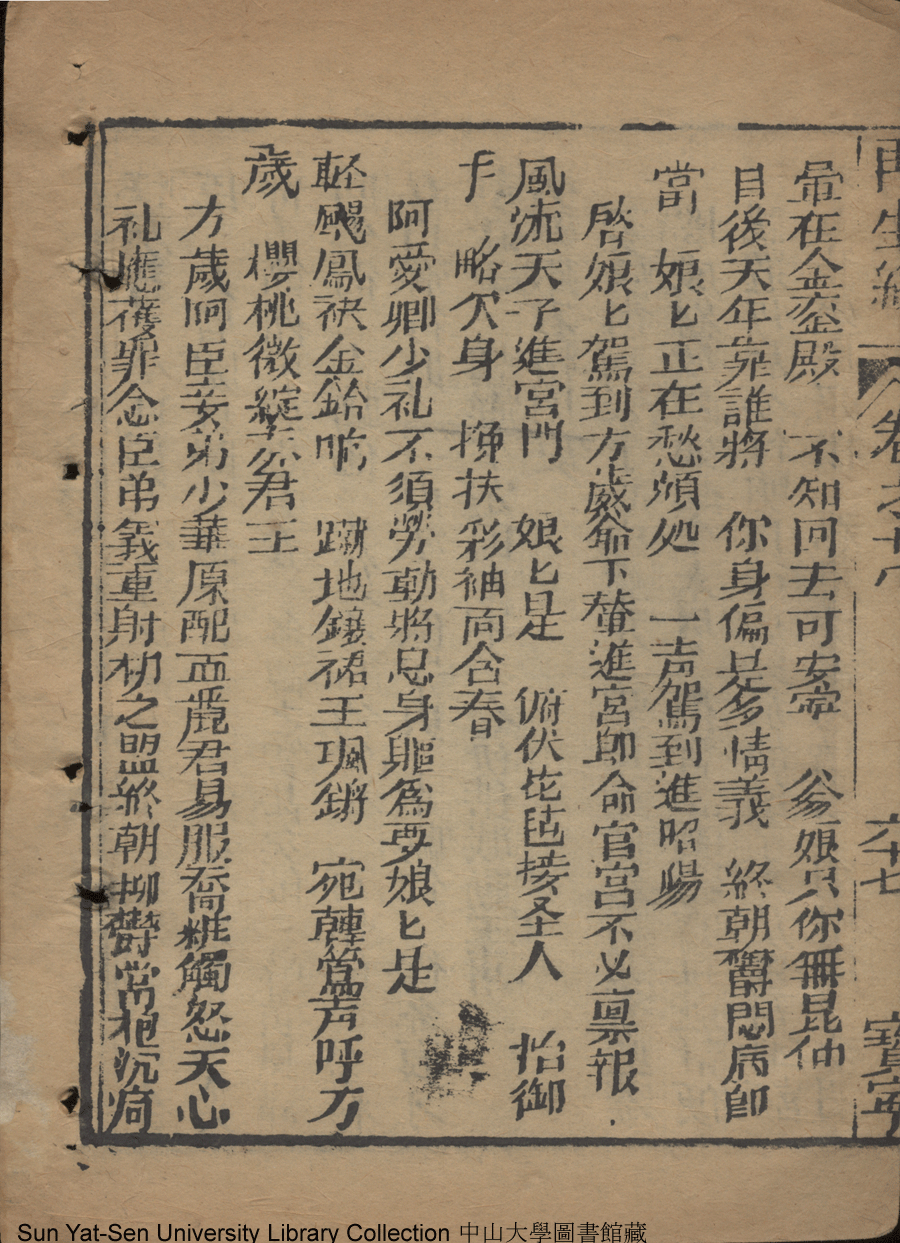 再生緣 卷 六十七 寶寧
暈在金鑾殿 不知回去可安寧 爹娘只你無昆仲
目後天年靠誰將 你身偏是多情義 終朝欝悶病郎
當 娘匕正在愁煩処 一声駕到進昭陽
啓娘匕駕到方歲爺下輦進宮即命官宮不必禀报
風流天子進宮門 娘匕足 俯伏花毡接圣人 抬御
手 略欠身 挽扶彩袖面含春
阿愛卿少礼不須勞動將息身軀為要娘匕是
輕颺鳳袂金鈴响 蹴地鑲裙玉珮鏘 宛轉鶯声呼方
歲 櫻桃微綻禀君王
方歲呵臣妾弟少華原配孟麗君易服喬粧觸怒天心
礼應獲罪念臣弟義重射柳之盟終朝抑欝常抱沉疴
Sun Yat-Sen University Library Collection 中山大學圖書館藏